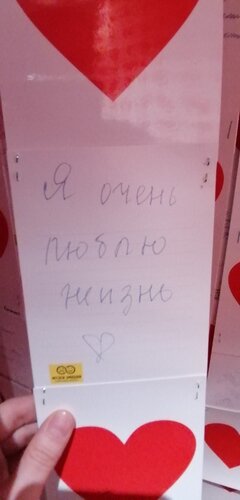 Я очень
люблю
жизнь